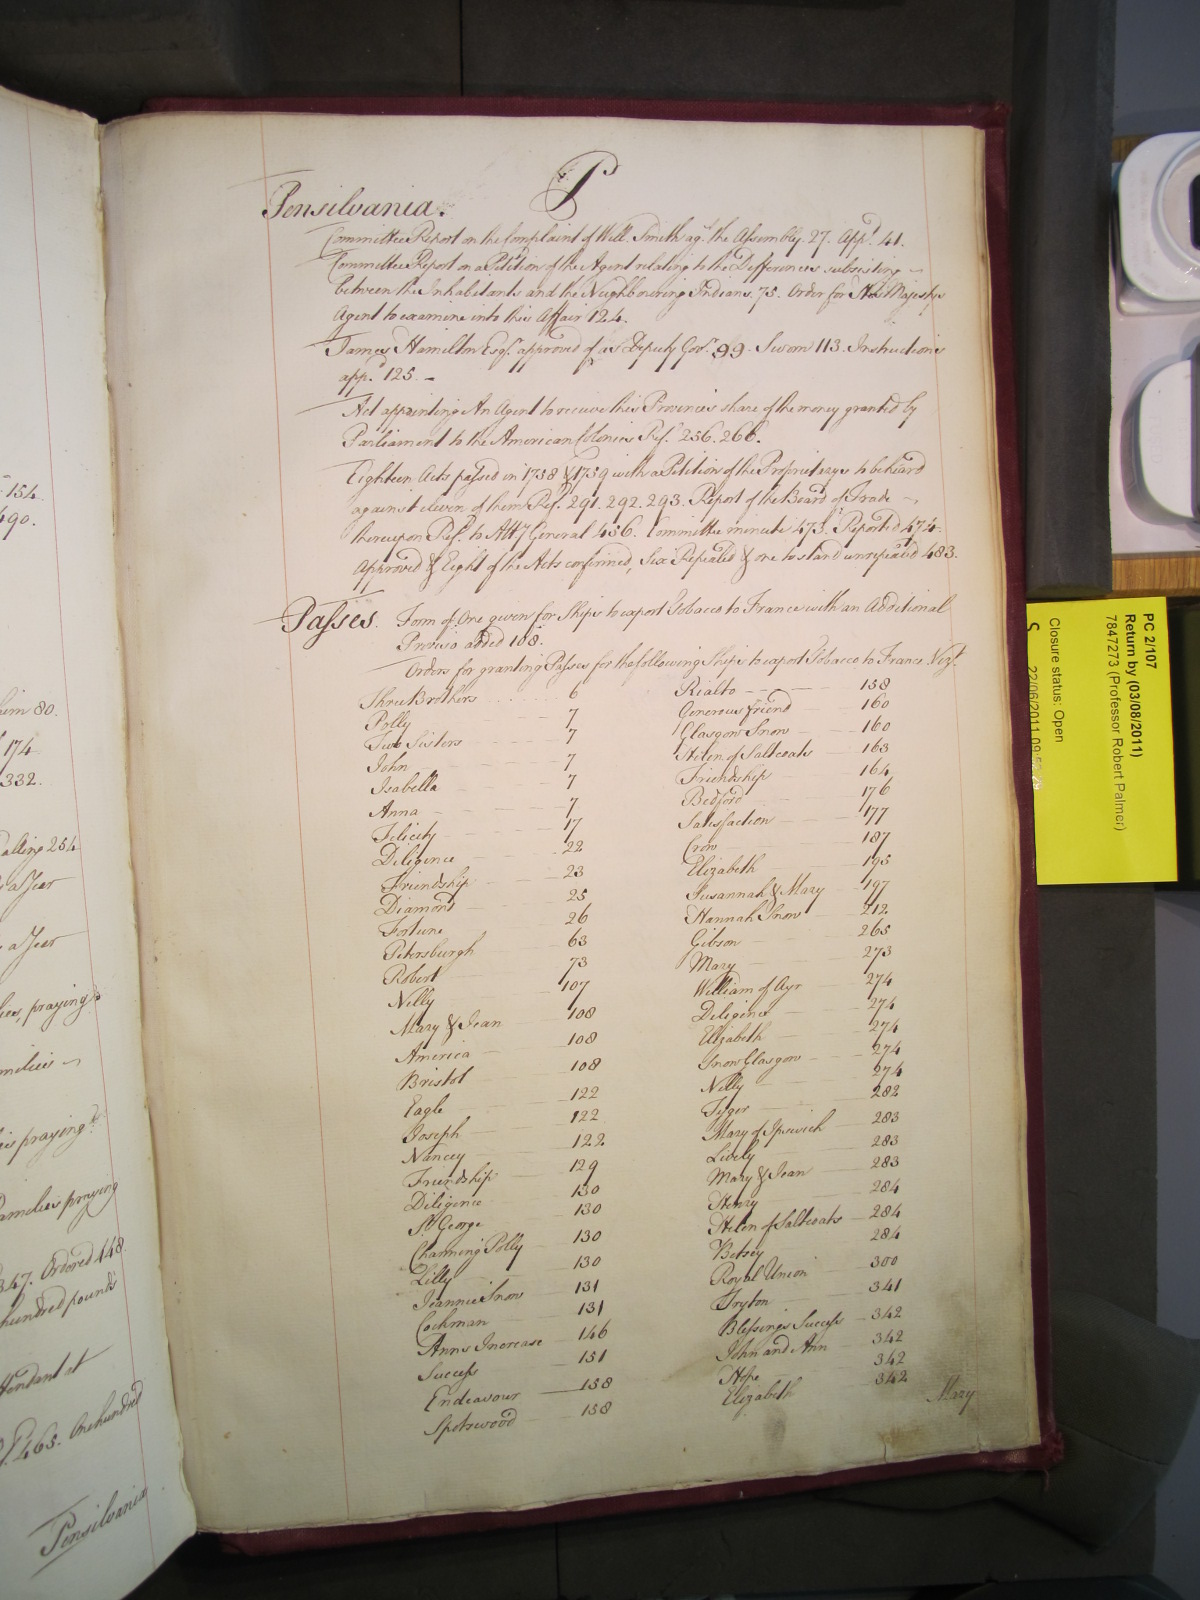 P
Pensilvania.
Committee Report on the Complaint of Will. Smith agt. the Assembly. 27. appd. 41.
Committee Report on a Petition of the Agent relating to the Differences subsisting
between the Inhabitants and the Neighbouring Indians. 75. Order for His Majestys
Agent to examine into this Affair 124.
James Hamilton Esqr. approved of as Deputy Govr. 99. Sworn 113. Instructions
appd. 125.
Act appointing An Agent to receive this Provinces share of the money granted by
Parliament to the American Colonies Refd. 256. 266.
Eighteen Acts passed in 1758 & 1759 with a Petition of the Proprietarys to be heard
against eleven of them Refd. 291. 292. 293. Report of the Board of Trade
thereupon Refd. to Atty General 456. Committee minute 473. Reported 474.
Approved & Eight of the Acts confirmed, Six Repealed & one to stand unrepealed 483.
Passes. Form of One given for Ships to export Tobacco to France with an Additional
Proviso added 108.
Orders for granting Passes for the following Ships to export Tobacco to France Vizt.
Three Brothers 6
Polly 7
Two Sisters 7
John 7
Isabella 7
Anna 7
Felicity 17
Diligence 22
Friendship 23
Diamond 25
Fortune 26
Petersburgh 63
Robert 73
Nelly 107
Mary & Jean 108
America 108
Bristol 108
Eagle 122
Joseph 122
Nancey 122
Friendship 129
Diligence 130
St. George 130
Charming Polly 130
Lilly 130
Jeannie Snow 131
Cochman 131
Anns Increase 146
Success 151
Endeavour 158
Spotswood 158
Rialto 158
Generous friend 160
Glasgow Snow 160
Helen of Saltcoats 163
Friendship 164
Bedford 176
Satisfaction 177
Crow 187
Elizabeth 195
Susannah & Mary 197
Hannah Snow 212
Gibson 265
Mary 273
William of Ayr 274
Diligence 274
Elizabeth 274
Snow Glasgow 274
Nelly 274
Tyger 282
Mary of Ipswich 283
Lively 283
Mary & Jean 283
Henry 284
Helen of Saltcoats 284
Betsey 284
Royal Union 300
Tryton 341
Blessings Success 342
John and Ann 342
Hope 342
Elizabeth 342
Mary
154.
490.
80.
174
332.
254
a Year
a Year
praying
praying
Families praying
347. Ordered 148.
hundred pounds
465. One hundred
Pensilvania
PC 2/107
Return by (03/08/2011)
7847273 (Professor Robert Palmer)
Closure status: Open